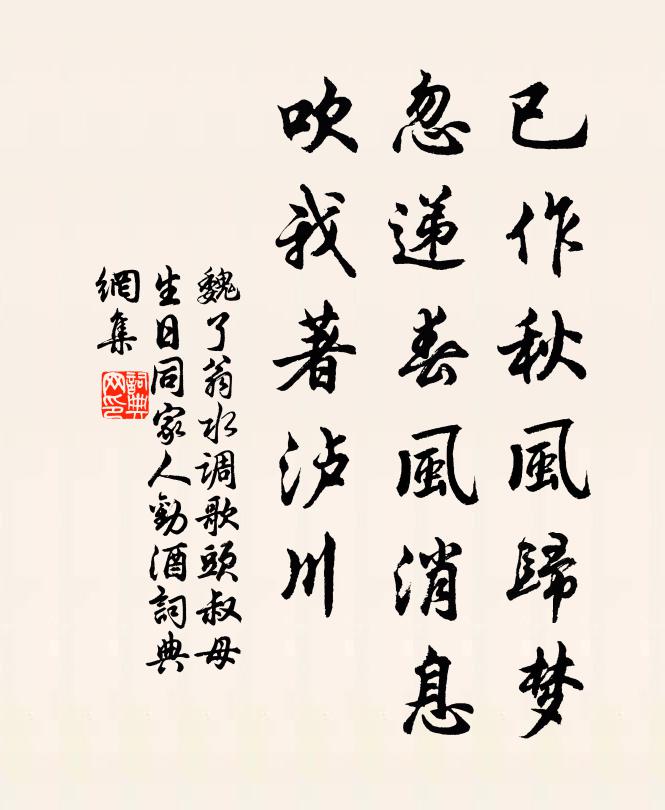 已作秋風歸梦
忽递春風消息
吹我著泸川
魏了翁水调歌頭叔母
生日同家人勸酒詞典
網集
詞典
网印